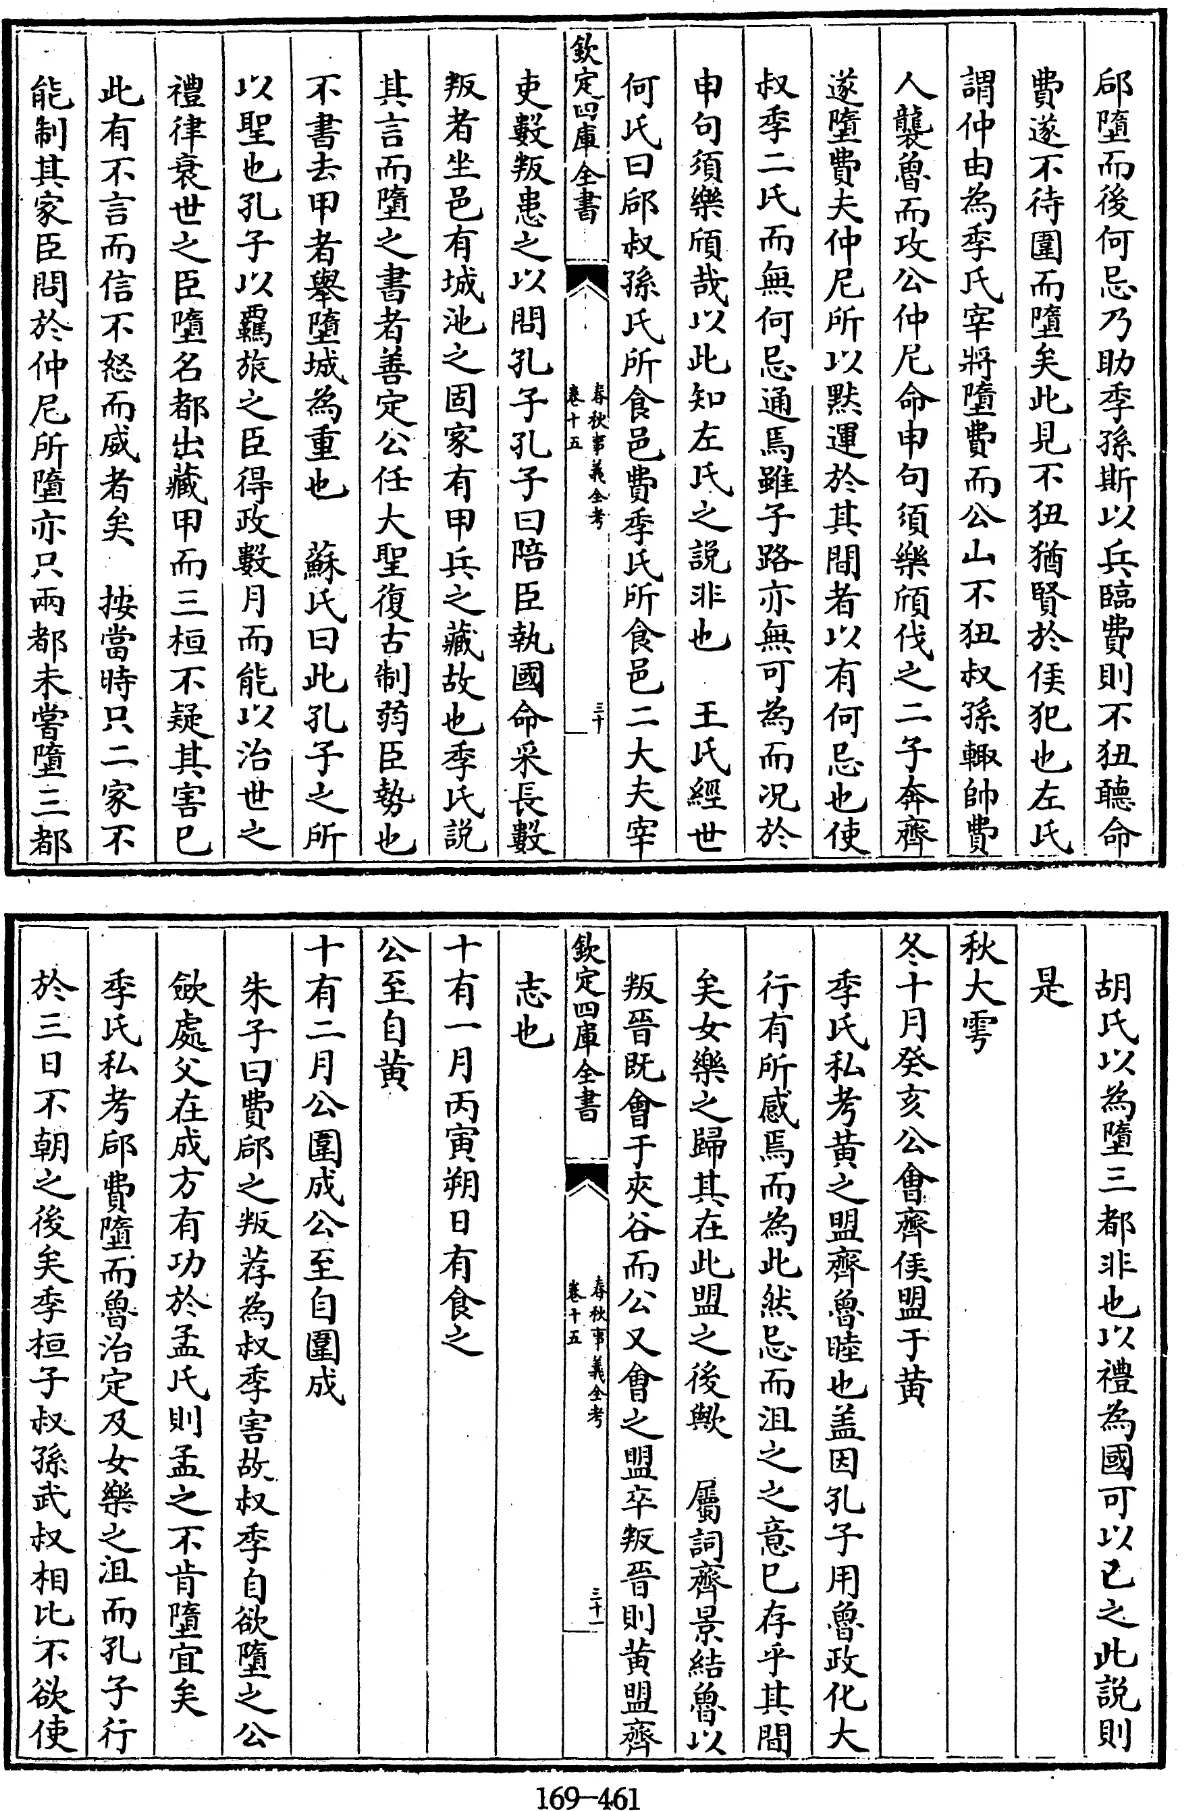 郈墮而後何忌乃助季孫斯以兵臨費則不狃聽命
費遂不待圍而墮矣此見不狃猶賢於侯犯也左氏
謂仲由為季氏宰將墮費而公山不狃叔孫輒帥費
人襲魯而攻公仲尼命申句須樂頎伐之二子奔齊
遂墮費夫仲尼所以默運於其間者以有何忌也使
叔季二氏而無何忌通焉雖子路亦無可為而况於
申句須樂頎哉以此知左氏之說非也　王氏經世
何氏曰郈叔孫氏所食邑費季氏所食邑二大夫宰
欽定四庫全書
春秋事義全考
卷十五
三十
吏數叛患之以問孔子孔子曰陪臣執國命采長數
叛者坐邑有城池之固家有甲兵之藏故也季氏說
其言而墮之書者善定公任大聖復古制弱臣勢也
不書去甲者舉墮城為重也　蘇氏曰此孔子之所
以聖也孔子以羈旅之臣得政數月而能以治世之
禮律衰世之臣墮名都出藏甲而三桓不疑其害已
此有不言而信不怒而威者矣　按當時只二家不
能制其家臣問於仲尼所墮亦只兩都未嘗墮三都
胡氏以為墮三都非也以禮為國可以已之此說則
是
秋大雩
冬十月癸亥公會齊侯盟于黄
季氏私考黄之盟齊魯睦也盖因孔子用魯政化大
行有所感焉而為此然忌而沮之之意已存乎其間
矣女樂之歸其在此盟之後歟　屬詞齊景結魯以
叛晉既會于夾谷而公又會之盟卒叛晉則黄盟齊
欽定四庫全書
春秋事義全考
卷十五
三十一
志也
十有一月丙寅朔日有食之
公至自黄
十有二月公圍成公至自圍成
朱子曰費郈之叛荐為叔季害故叔季自欲墮之公
斂處父在成方有功於孟氏則孟之不肯墮宜矣
季氏私考郈費墮而魯治定及女樂之沮而孔子行
於三日不朝之後矣季桓子叔孫武叔相比不欲使
169-461